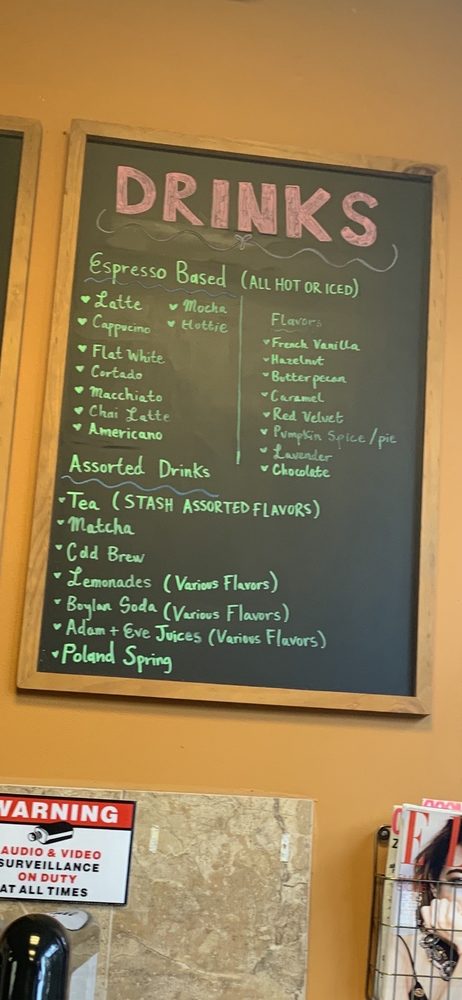 DRINKS
Espresso Based (ALL HOT OR ICED)
Latte
Cappucino
Flat White
Cortado
Macchiato
Chai Latte
Americano
Mocha
Hottie
Flavors
French Vanilla
Hazelnut
Butter pecan
Caramel
Red Velvet
Pumpkin Spice/pie
Lavender
Chocolate
Assorted Drinks
Tea (STASH ASSORTED FLAVORS)
Matcha
Cold Brew
Lemonades (Various Flavors)
Boylan Soda (Various Flavors)
Adam + Eve Juices (Various Flavors)
Poland Spring
WARNING
AUDIO & VIDEO
SURVEILLANCE
ON DUTY
AT ALL TIMES